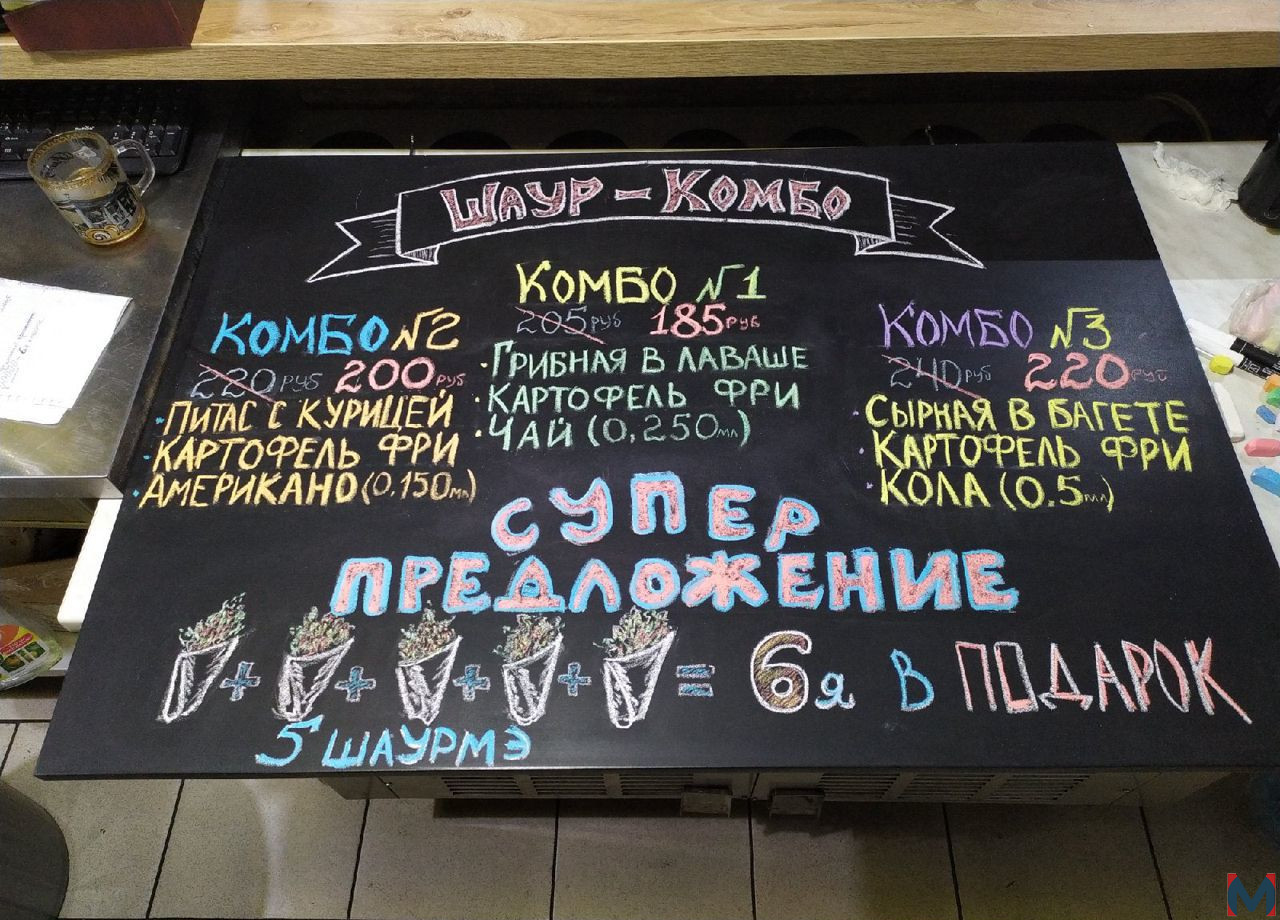 ШАУР - КОМБО
КОМБО №1
205 РУБ 185 РУБ
• ГРИБНАЯ В ЛАВАШЕ
• КАРТОФЕЛЬ ФРИ
• ЧАЙ (0,250 мл)
КОМБО №2
220 РУБ 200 РУБ
• ПИТАС С КУРИЦЕЙ
• КАРТОФЕЛЬ ФРИ
• АМЕРИКАНО (0,150 мл)
КОМБО №3
240 РУБ 220 РУБ
• СЫРНАЯ В БАГЕТЕ
• КАРТОФЕЛЬ ФРИ
• КОЛА (0.5 мл)
СУПЕР
ПРЕДЛОЖЕНИЕ
+ + + + = 6я В ПОДАРОК
5 ШАУРМЭ
M